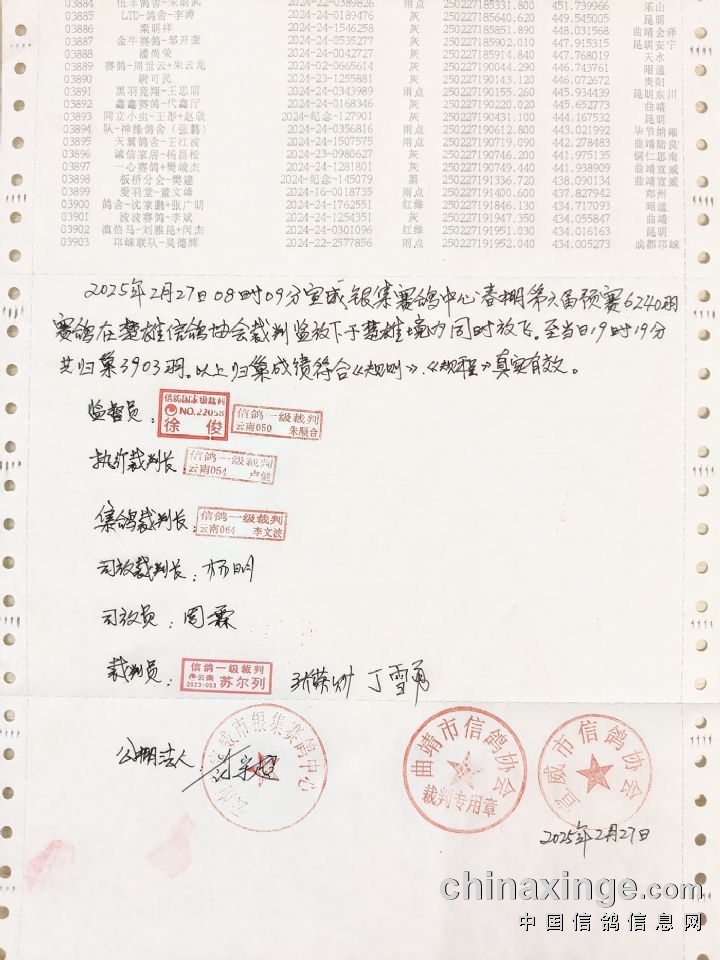 03884 伍羊鸽舍-朱朝武 2024-22-0389826 雨点 250227185331.800 451.739966 乐山
03885 LTD-鸽舍-李涛 2024-24-0189476 灰 250227185640.620 449.545005 昆明
03886 梁明祥 2024-24-1546258 灰 250227185851.890 448.031568 曲靖会泽
03887 金牛赛鸽-邹开奎 2024-24-0535277 灰 250227185902.010 447.915315 昆明安宁
03888 潘尚荣 2024-24-0042727 灰 250227185914.840 447.768019 天水
03889 赛鸽-周世云+朱云龙 2024-02-0665614 灰 250227190044.290 446.743761 昭通
03890 尉可民 2024-23-1255881 灰 250227190143.120 446.072672 贵阳
03891 黑羽竞翔-王忠明 2024-24-0343989 雨点 250227190155.260 445.934439 昆明东川
03892 鑫鑫赛鸽-代鑫厅 2024-24-0168346 灰 250227190220.020 445.652773 曲靖
03893 同立小虫-王彤+赵欣 2024-纪念-127901 灰 250227190431.100 444.167532 昆明
03894 队-神缘鸽舍（张鹏） 2024-24-0356816 雨点 250227190612.800 443.021992 毕节纳雍
03895 天翼鸽舍-王江波 2024-24-1507575 雨点 250227190719.090 442.278604 曲靖陆良
03896 诚信家居-杨昌松 2024-23-0980627 灰 250227190746.200 441.975135 铜仁思南
03897 一心赛鸽+樊峻杰 2024-24-1281801 灰 250227190749.460 441.938690 曲靖宣威
03898 板桥分会-樊建 2024-纪念-145079 黑 250227191336.720 438.090134 曲靖宣威
03899 斐羽堂-董文峰 2024-16-0018735 雨点 250227191400.600 437.827942 郑州
03900 鸽舍-沈家鹏+张广明 2024-24-1762551 红绛 250227191846.130 434.717093 昭通
03901 波波赛鸽-李斌 2024-24-1254351 灰 250227191947.350 434.055847 曲靖
03902 滇伯马-刘雅昆+闵杰 2024-24-0916131 红绛 250227191951.050 434.016031 昆明
03903 邛崃联队-吴德辉 2024-22-2577856 雨点 250227191952.040 434.005163 成都邛崃
2025年2月27日08时09分宣威银集赛鸽中心春棚第六届预赛6240羽
赛鸽在楚雄信鸽协会裁判监放下于楚雄境内同时放飞。至当日19时19分
共归巢3903羽。以上归巢成绩符合《规则》、《规程》真实有效。
监督员： 信鸽国家级裁判 NO.22058 徐俊 信鸽一级裁判 云南050 朱顺合
执行裁判长： 信鸽一级裁判 云南054 卢健
集鸽裁判长： 信鸽一级裁判 云南064 李文波
司放裁判长：杨明
司放员：周霖
裁判员： 信鸽一级裁判 云南 2023-053 苏尔列 丁雪勇
公棚法人：
威市银集赛鸽中心
曲靖市信鸽协会 裁判专用章
宣威市信鸽协会
2025年2月27日
chinaxinge.com
中国信鸽信息网